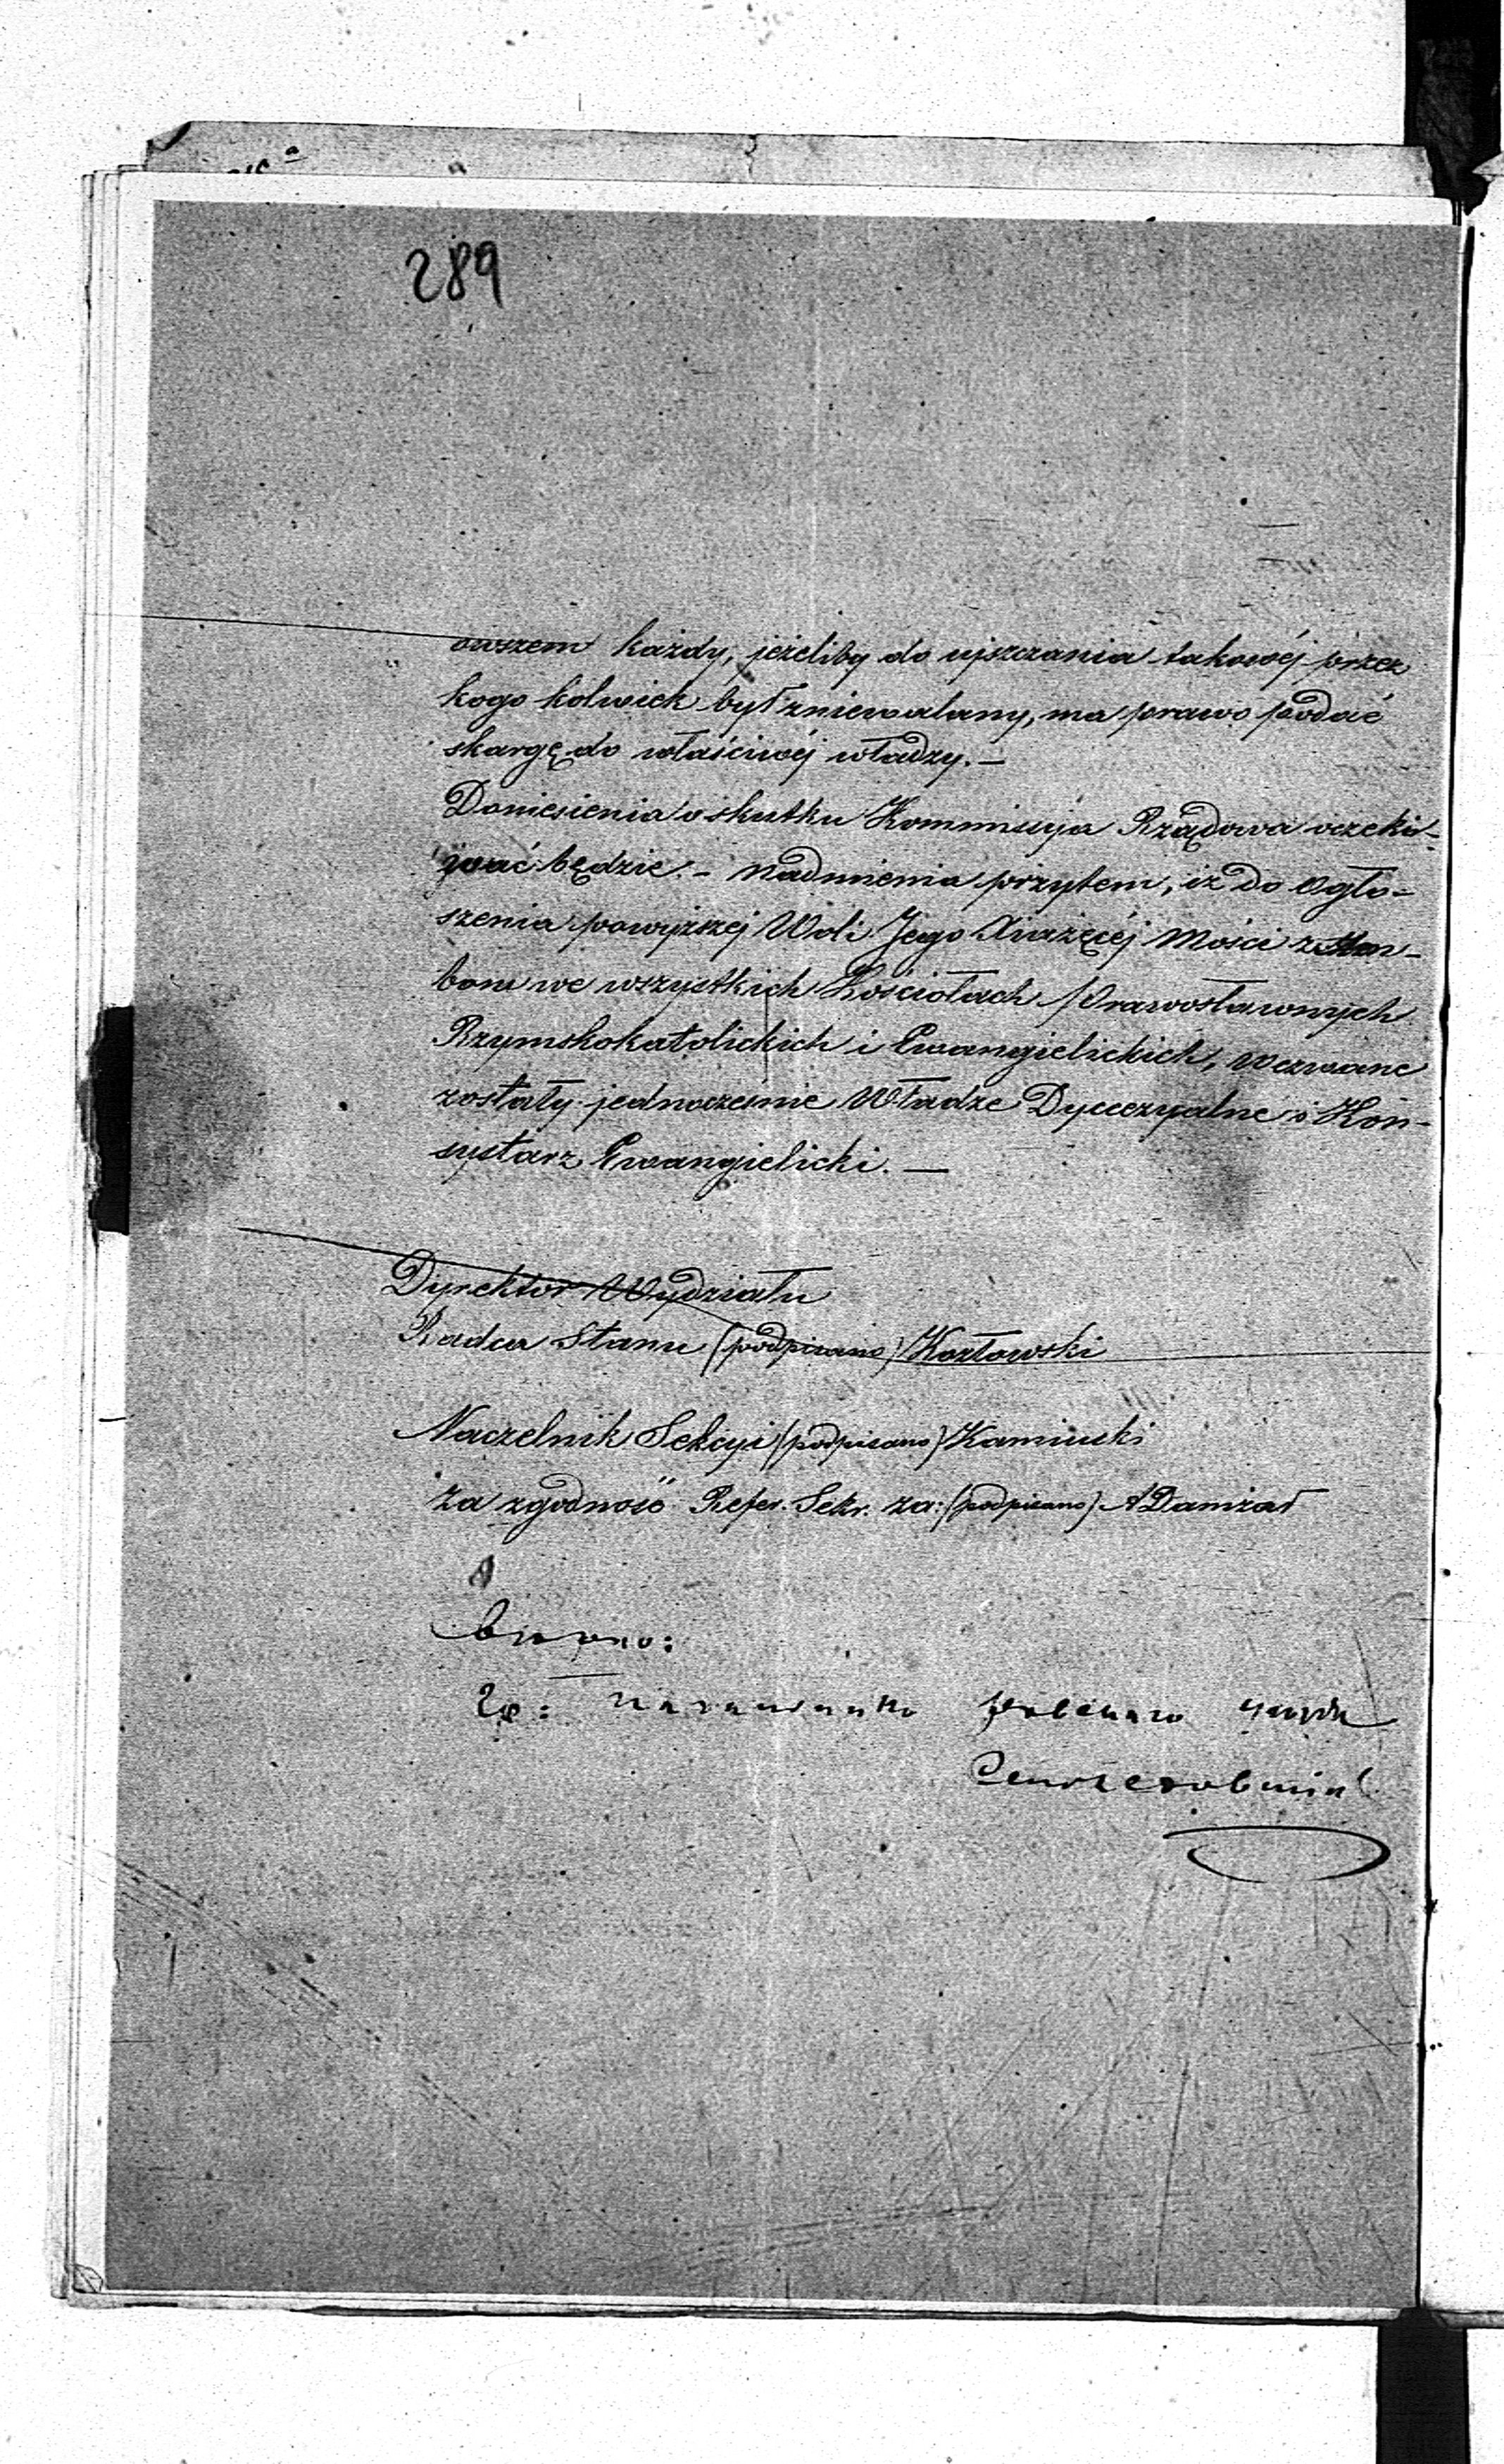 289
owszem każdy, jeżeliby do ujszczania takowéj przez
kogo kolwiek był zniewalany, ma prawo podać
skargę do właściwéj władzy. —
Doniesienia o skutku Kommissyja Rządowa oczeki-
wać będzie. – Nadmienia przytem, iż do Ogło-
szenia powyższej Woli Jego Xiążęcéj Mości z Am-
bon we wszystkich Kościołach Prawosławnych
Rzymskokatolickich i Ewangielickich, wezwane
zostały jednocześnie Władze Dyecezyalne i Kon-
systarz Ewangielicki. —
Dyrektor Wydziału
Radca Stanu (podpisano) Kozłowski
Naczelnik Sekcyi (podpisano) Kamiński
Za zgodność Refer. Sekr. za: (podpisano) A
Вѣрно: